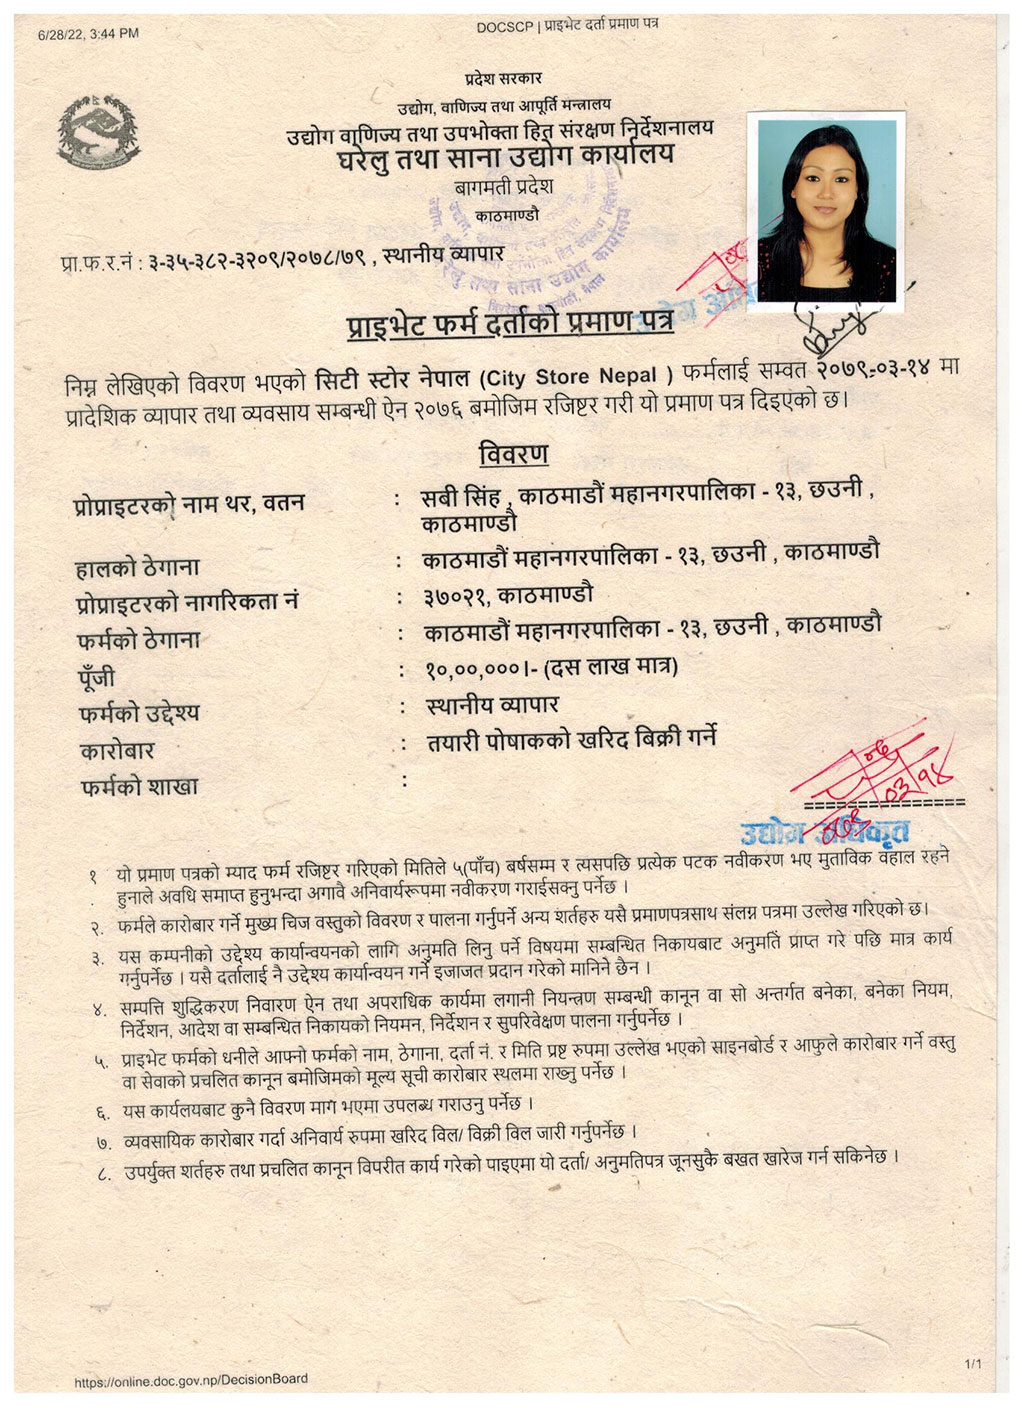 6/28/22, 3:44 PM
DOCSCP | प्राइभेट दर्ता प्रमाण पत्र
प्रदेश सरकार
उद्योग, वाणिज्य तथा आपूर्ति मन्त्रालय
उद्योग वाणिज्य तथा उपभोक्ता हित संरक्षण निर्देशनालय
घरेलु तथा साना उद्योग कार्यालय
बागमती प्रदेश
काठमाण्डौ
प्रा.फ.र.नं : ३-३५-३८२-३२०९/२०७८/७९ , स्थानीय व्यापार
प्राइभेट फर्म दर्ताको प्रमाण पत्र
निम्न लेखिएको विवरण भएको सिटी स्टोर नेपाल (City Store Nepal ) फर्मलाई सम्वत २०७९-०३-१४ मा
प्रादेशिक व्यापार तथा व्यवसाय सम्बन्धी ऐन २०७६ बमोजिम रजिष्टर गरी यो प्रमाण पत्र दिइएको छ।
विवरण
प्रोप्राइटरको नाम थर, वतन : सबी सिंह , काठमाडौं महानगरपालिका - १३, छउनी ,
काठमाण्डौ
हालको ठेगाना : काठमाडौं महानगरपालिका - १३, छउनी , काठमाण्डौ
प्रोप्राइटरको नागरिकता नं : ३७०२१, काठमाण्डौ
फर्मको ठेगाना : काठमाडौं महानगरपालिका - १३, छउनी , काठमाण्डौ
पूँजी : १०,००,०००।- (दस लाख मात्र)
फर्मको उद्देश्य : स्थानीय व्यापार
कारोबार : तयारी पोषाकको खरिद बिक्री गर्ने
फर्मको शाखा :
उद्योग अधिकृत
१ यो प्रमाण पत्रको म्याद फर्म रजिष्टर गरिएको मितिले ५(पाँच) बर्षसम्म र त्यसपछि प्रत्येक पटक नवीकरण भए मुताविक वहाल रहने
. हुनाले अवधि समाप्त हुनुभन्दा अगावै अनिवार्यरूपमा नवीकरण गराईसक्नु पर्नेछ ।
२. फर्मले कारोबार गर्ने मुख्य चिज वस्तुको विवरण र पालना गर्नुपर्ने अन्य शर्तहरु यसै प्रमाणपत्रसाथ संलग्न पत्रमा उल्लेख गरिएको छ।
३. यस कम्पनीको उद्देश्य कार्यान्वयनको लागि अनुमति लिनु पर्ने विषयमा सम्बन्धित निकायबाट अनुमति प्राप्त गरे पछि मात्र कार्य
गर्नुपर्नेछ । यसै दर्तालाई नै उद्देश्य कार्यान्वयन गर्ने इजाजत प्रदान गरेको मानिने छैन ।
४. सम्पत्ति शुद्धिकरण निवारण ऐन तथा अपराधिक कार्यमा लगानी नियन्त्रण सम्बन्धी कानून वा सो अन्तर्गत बनेका, बनेका नियम,
निर्देशन, आदेश वा सम्बन्धित निकायको नियमन, निर्देशन र सुपरिवेक्षण पालना गर्नुपर्नेछ ।
५. प्राइभेट फर्मको धनीले आफ्नो फर्मको नाम, ठेगाना, दर्ता नं. र मिति प्रष्ट रुपमा उल्लेख भएको साइनबोर्ड र आफुले कारोबार गर्ने वस्तु
वा सेवाको प्रचलित कानून बमोजिमको मूल्य सूची कारोबार स्थलमा राख्नु पर्नेछ ।
६. यस कार्यलयबाट कुनै विवरण माग भएमा उपलब्ध गराउनु पर्नेछ ।
७. व्यवसायिक कारोबार गर्दा अनिवार्य रुपमा खरिद विल/ विक्री विल जारी गर्नुपर्नेछ ।
८. उपर्युक्त शर्तहरु तथा प्रचलित कानून विपरीत कार्य गरेको पाइएमा यो दर्ता/ अनुमतिपत्र जूनसुकै बखत खारेज गर्न सकिनेछ ।
1/1
https://online.doc.gov.np/DecisionBoard